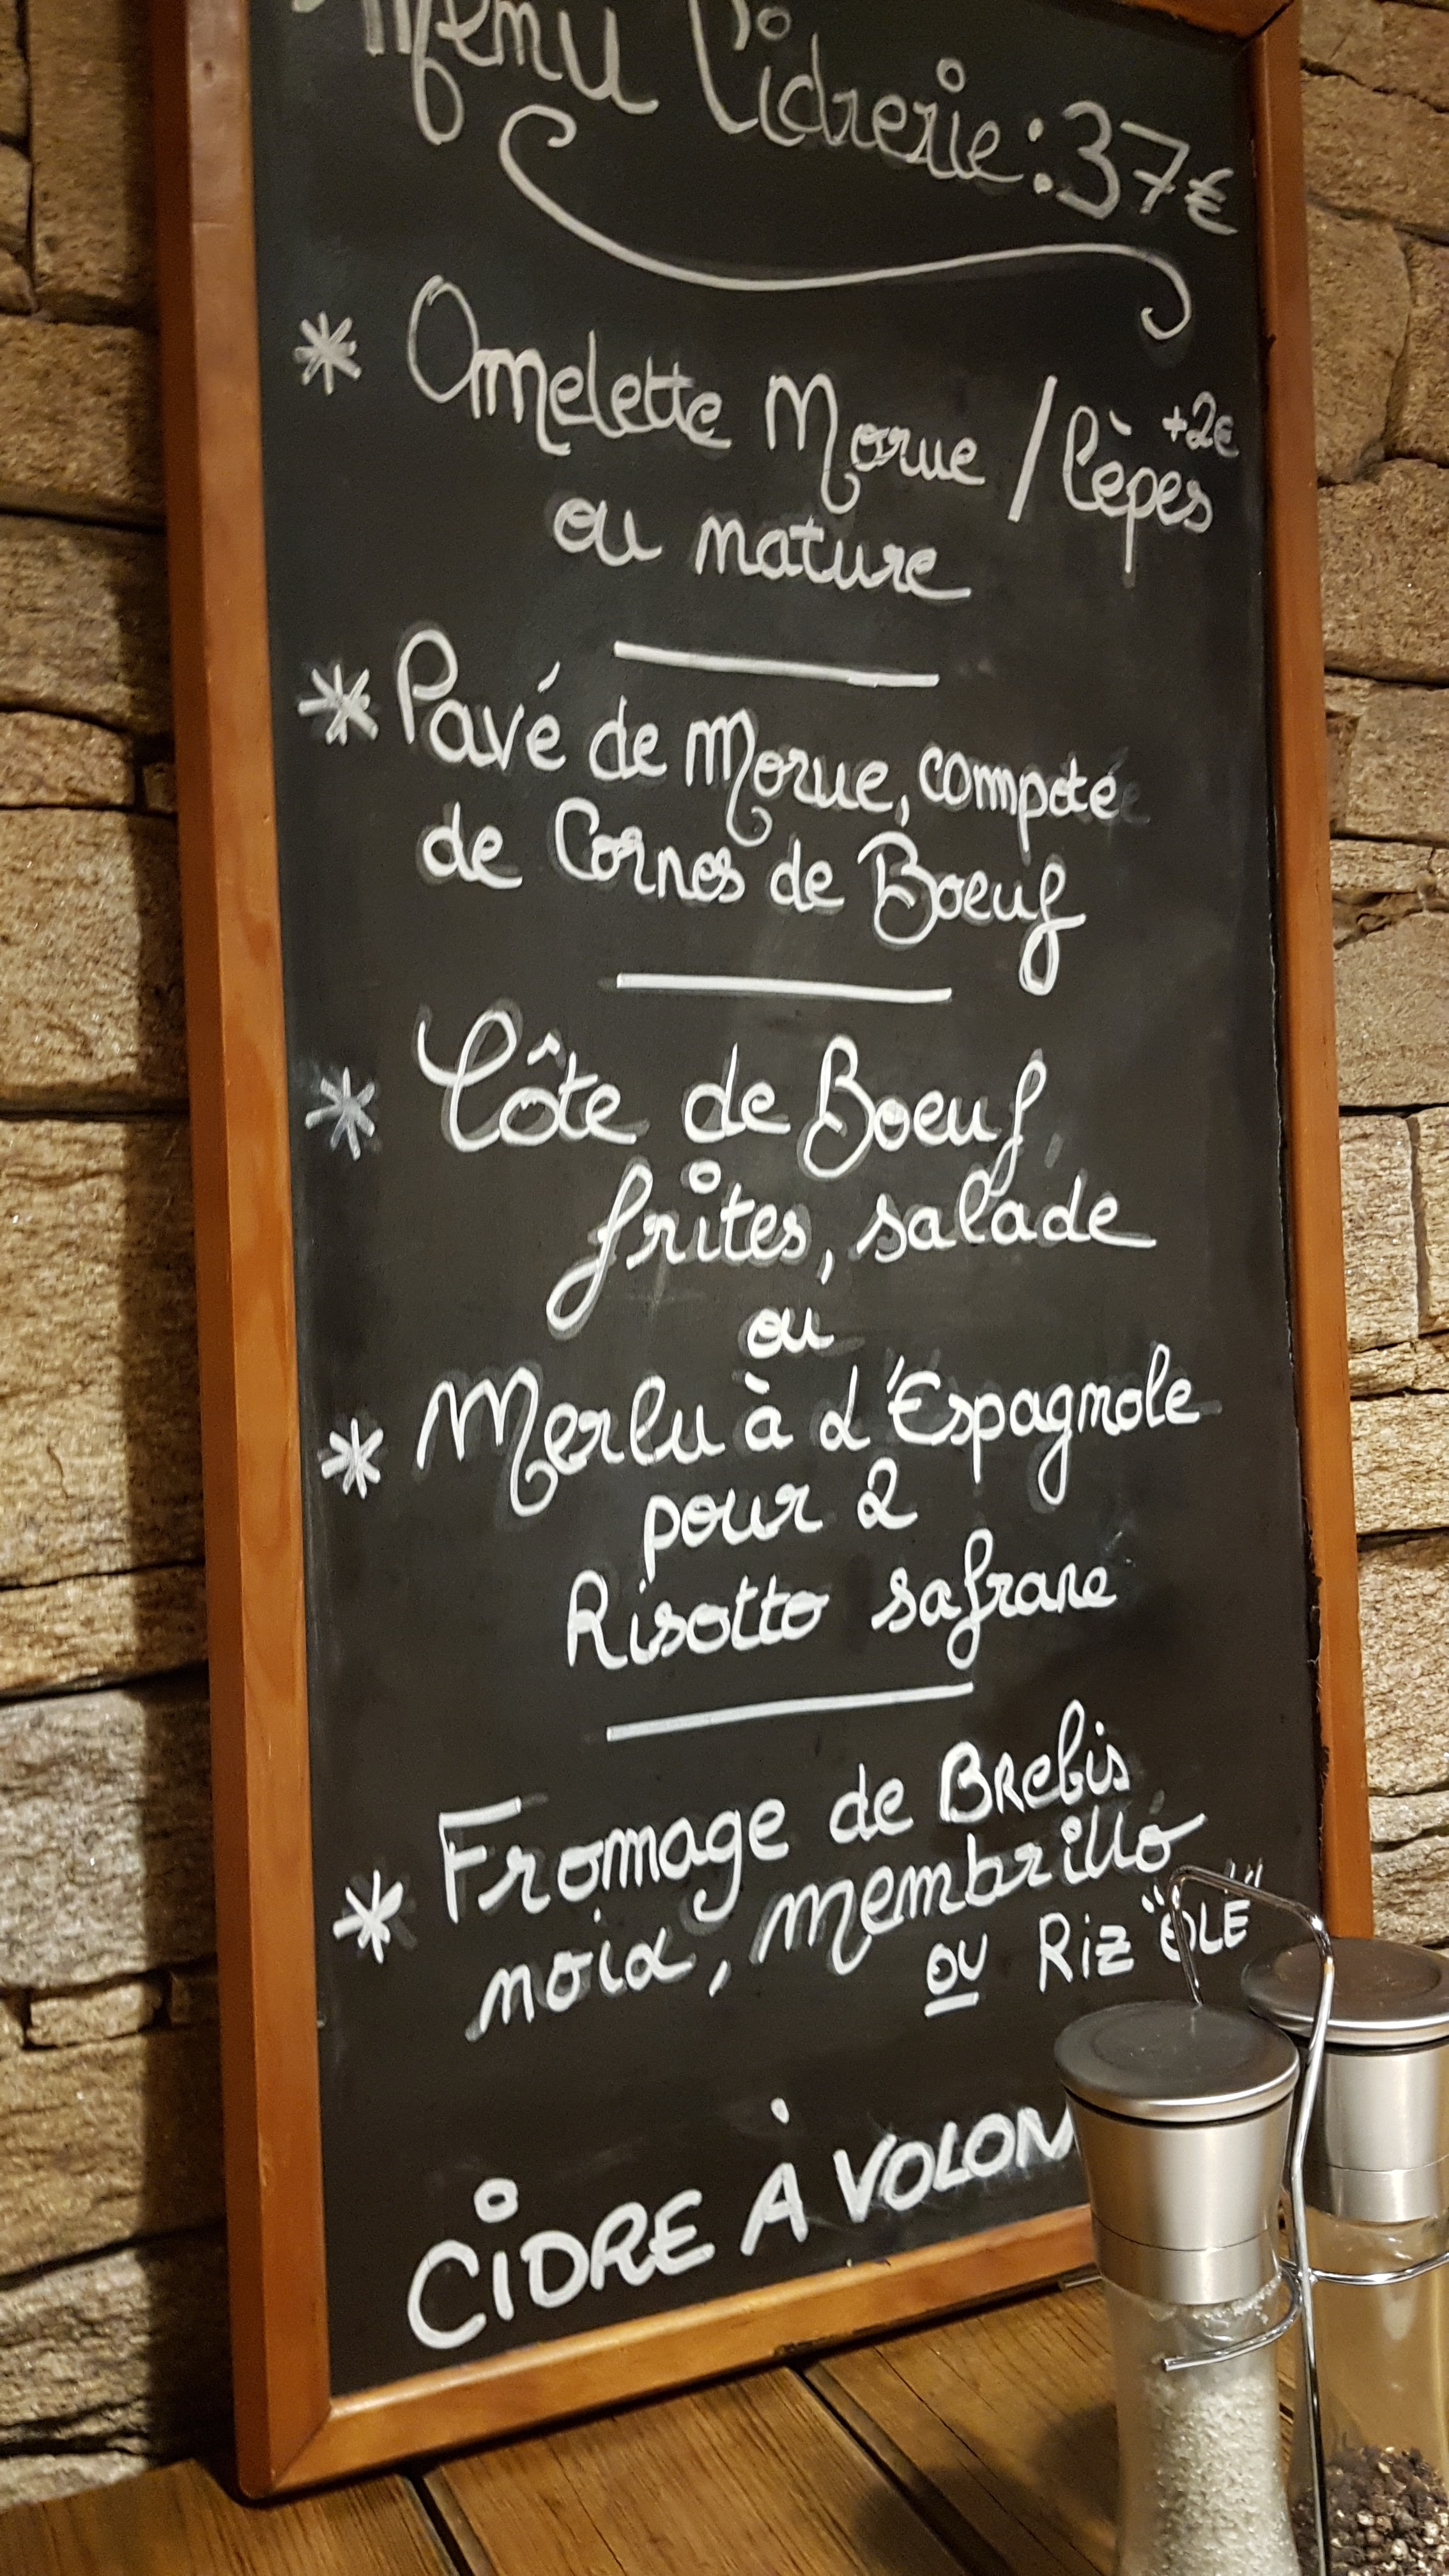 Menu Cidrerie : 37€
* Omelette Morue / Cèpes +2€
ou nature
* Pavé de Morue, compoté
de Cornes de Boeuf
* Côte de Boeuf,
frites, salade
ou
* Merlu à l'Espagnole
pour 2
Risotto safrané
* Fromage de Brebis
noix, membrillo
ou Riz "OLE"
CIDRE À VOLON